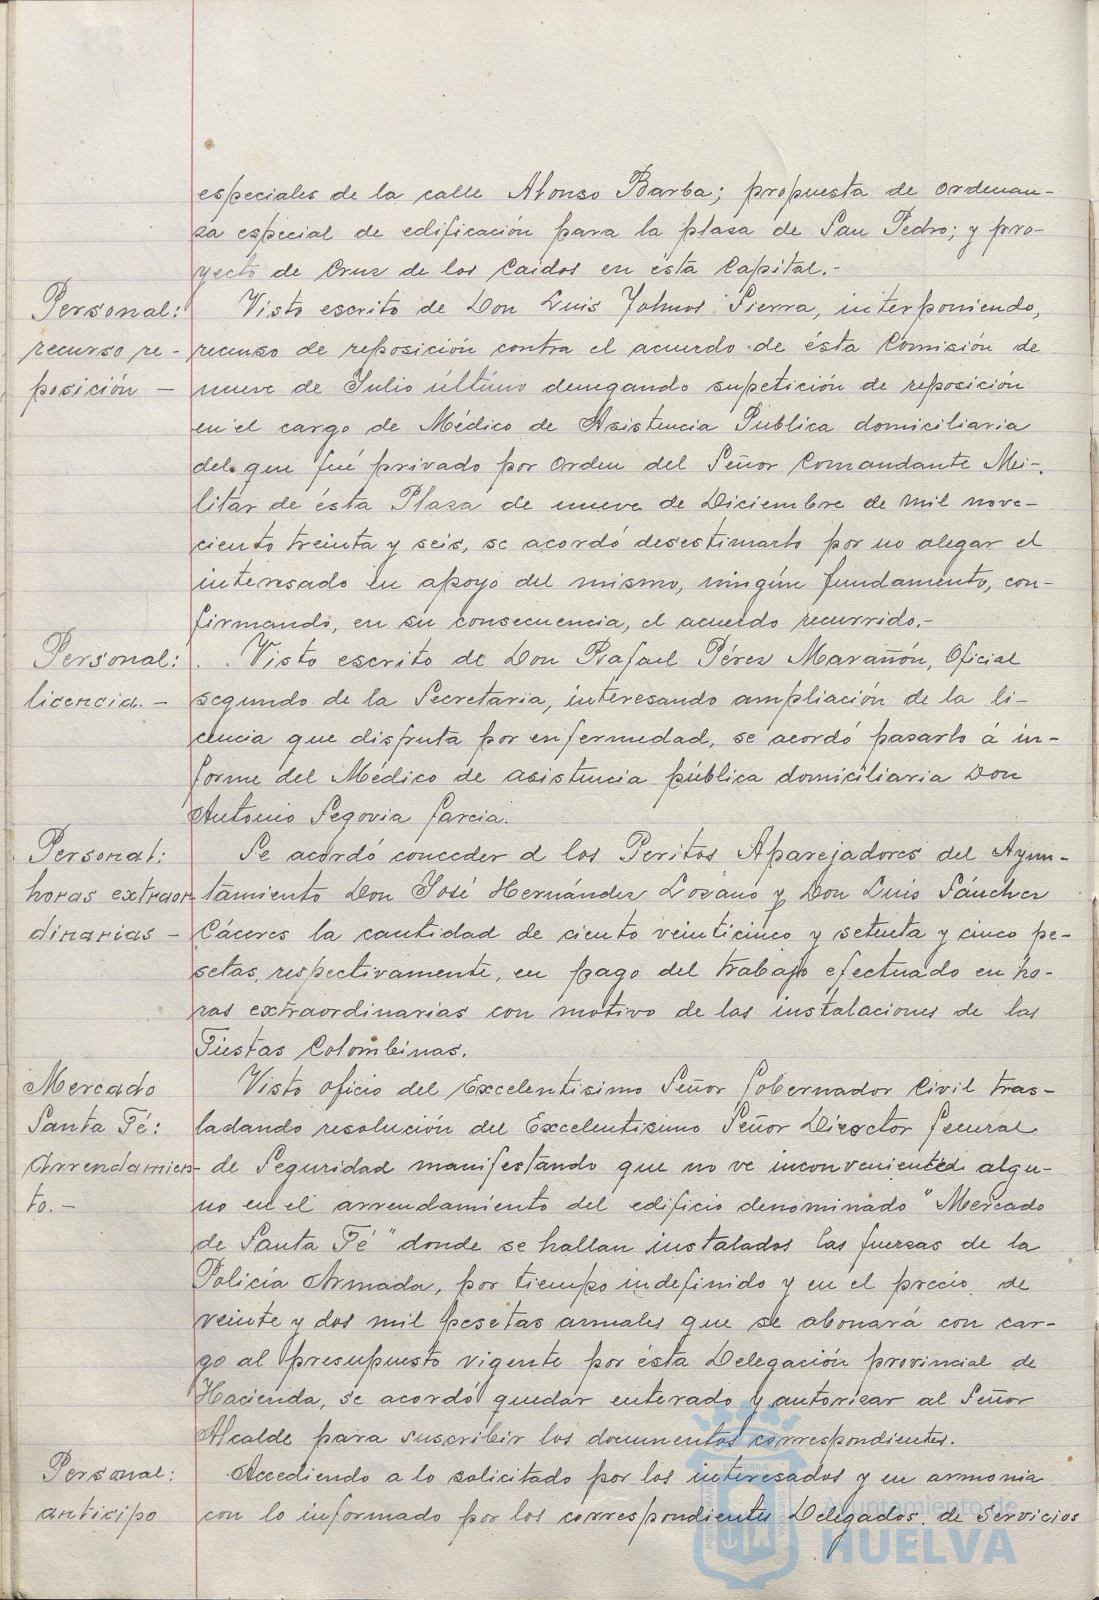 especiales de la calle Alonso Barba; propuesta de ordenan-
za especial de edificación para la plaza de San Pedro; y pro-
yecto de Cruz de los Caidos en ésta Capital.-
Personal:
recurso re-
posición —
Visto escrito de Don Luis Sierra, interponiendo,
recurso de reposición contra el acuerdo de ésta Comisión de
nueve de Julio último denegando supetición de reposición
en el cargo de Médico de Asistencia Pública domiciliaria
del que fué privado por orden del Señor Comandante Mi-
litar de ésta Plaza de nueve de Diciembre de mil nove-
ciento treinta y seis, se acordó desestimarlo por no alegar el
interesado en apoyo del mismo, ningún fundamento, con-
firmando, en su consecuencia, el acuerdo recurrido.-
Personal:
licencia.-
Visto escrito de Don Rafael Pérez Marañón, Oficial
segundo de la Secretaria, interesando ampliación de la li-
cencia que disfruta por enfermedad, se acordó pasarlo á in-
forme del Médico de asistencia pública domiciliaria Don
Antonio Segovia Garcia.
Personal:
horas extraor-
dinarias -
Se acordó conceder á los Peritos Aparejadores del Ayun-
tamiento Don José Hernández Lozano y Don Luis Sánchez
Cáceres la cantidad de ciento veinticinco y setenta y cinco pe-
setas, respectivamente, en pago del trabajo efectuado en ho-
ras extraordinarias con motivo de las instalaciones de las
Fiestas Colombinas.
Mercado
Santa Fé:
Arrendamien-
to.-
Visto oficio del Excelentisimo Señor Gobernador Civil tras-
ladando resolución del Excelentisimo Señor Director General
de Seguridad manifestando que no ve inconveniente algu-
no en el arrendamiento del edificio denominado "Mercado
de Santa Fé" donde se hallan instalados las fuerzas de la
Policía Armada, por tiempo indefinido y en el precio de
veinte y dos mil pesetas anuales que se abonará con car-
go al presupuesto vigente por ésta Delegación provincial de
Hacienda, se acordó quedar enterado y autorizar al Señor
Alcalde para suscribir los documentos correspondientes.
Personal:
anticipo
Accediendo a lo solicitado por los interesados y en armonia
con lo informado por los correspondientes Delegados de Servicios
Ayuntamiento de
HUELVA